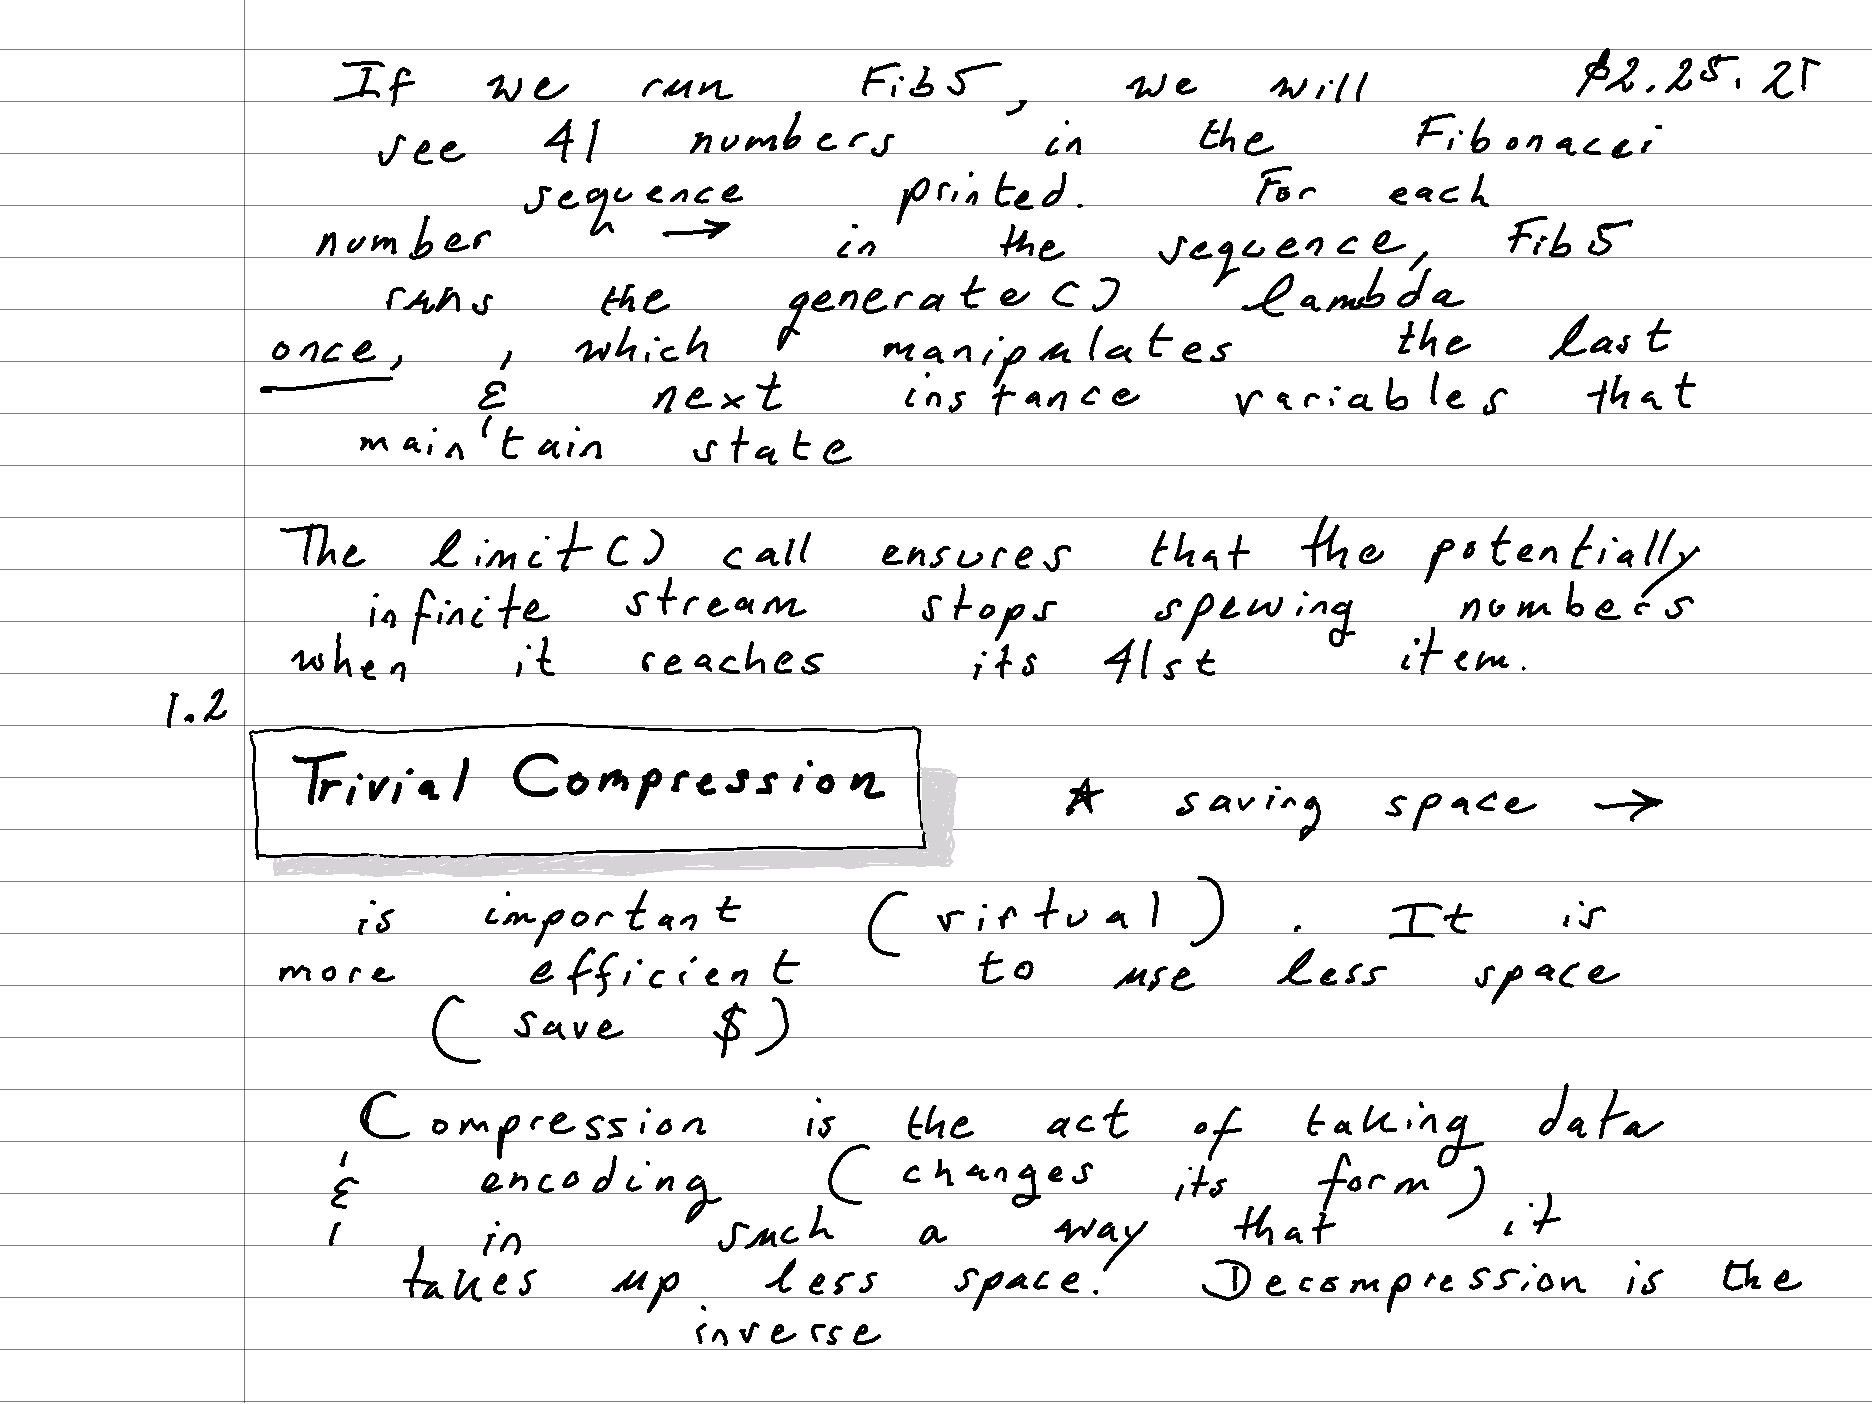 If we run Fib5, we will 2.25.25
see 41 numbers in the Fibonacci
sequence printed. For each
number → in the sequence, Fib5
runs the generate() lambda
once, , which manipulates the last
& next instance variables that
maintain state
The limit() call ensures that the potentially
infinite stream stops spewing numbers
when it reaches its 41st item.
1.2
Trivial Compression
☆ saving space →
is important (virtual). It is
more efficient to use less space
(save $)
Compression is the act of taking data
& encoding (changes its form)
in such a way that it
takes up less space. Decompression is the
inverse